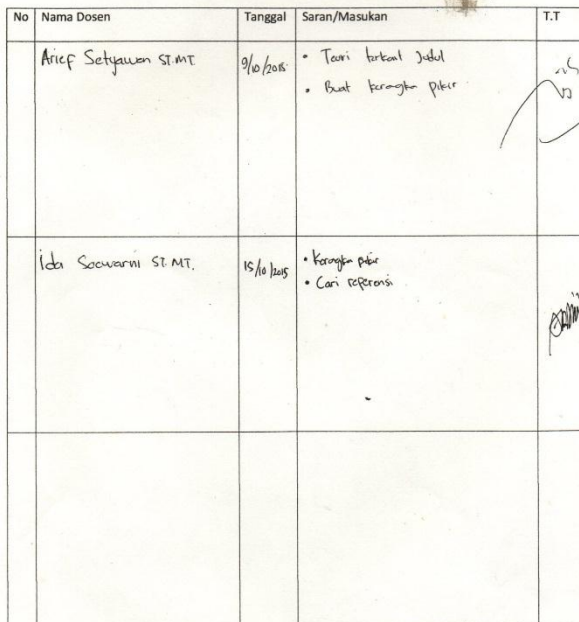 No Nama Dosen Tanggal Saran/Masukan T.T
Arief Setyawan ST.MT 9/10/2015 • Teori terkait Judul
• Buat kerangka pikir
Ida Soewarni ST.MT. 15/10/2015 • Kerangka pikir
• Cari referensi